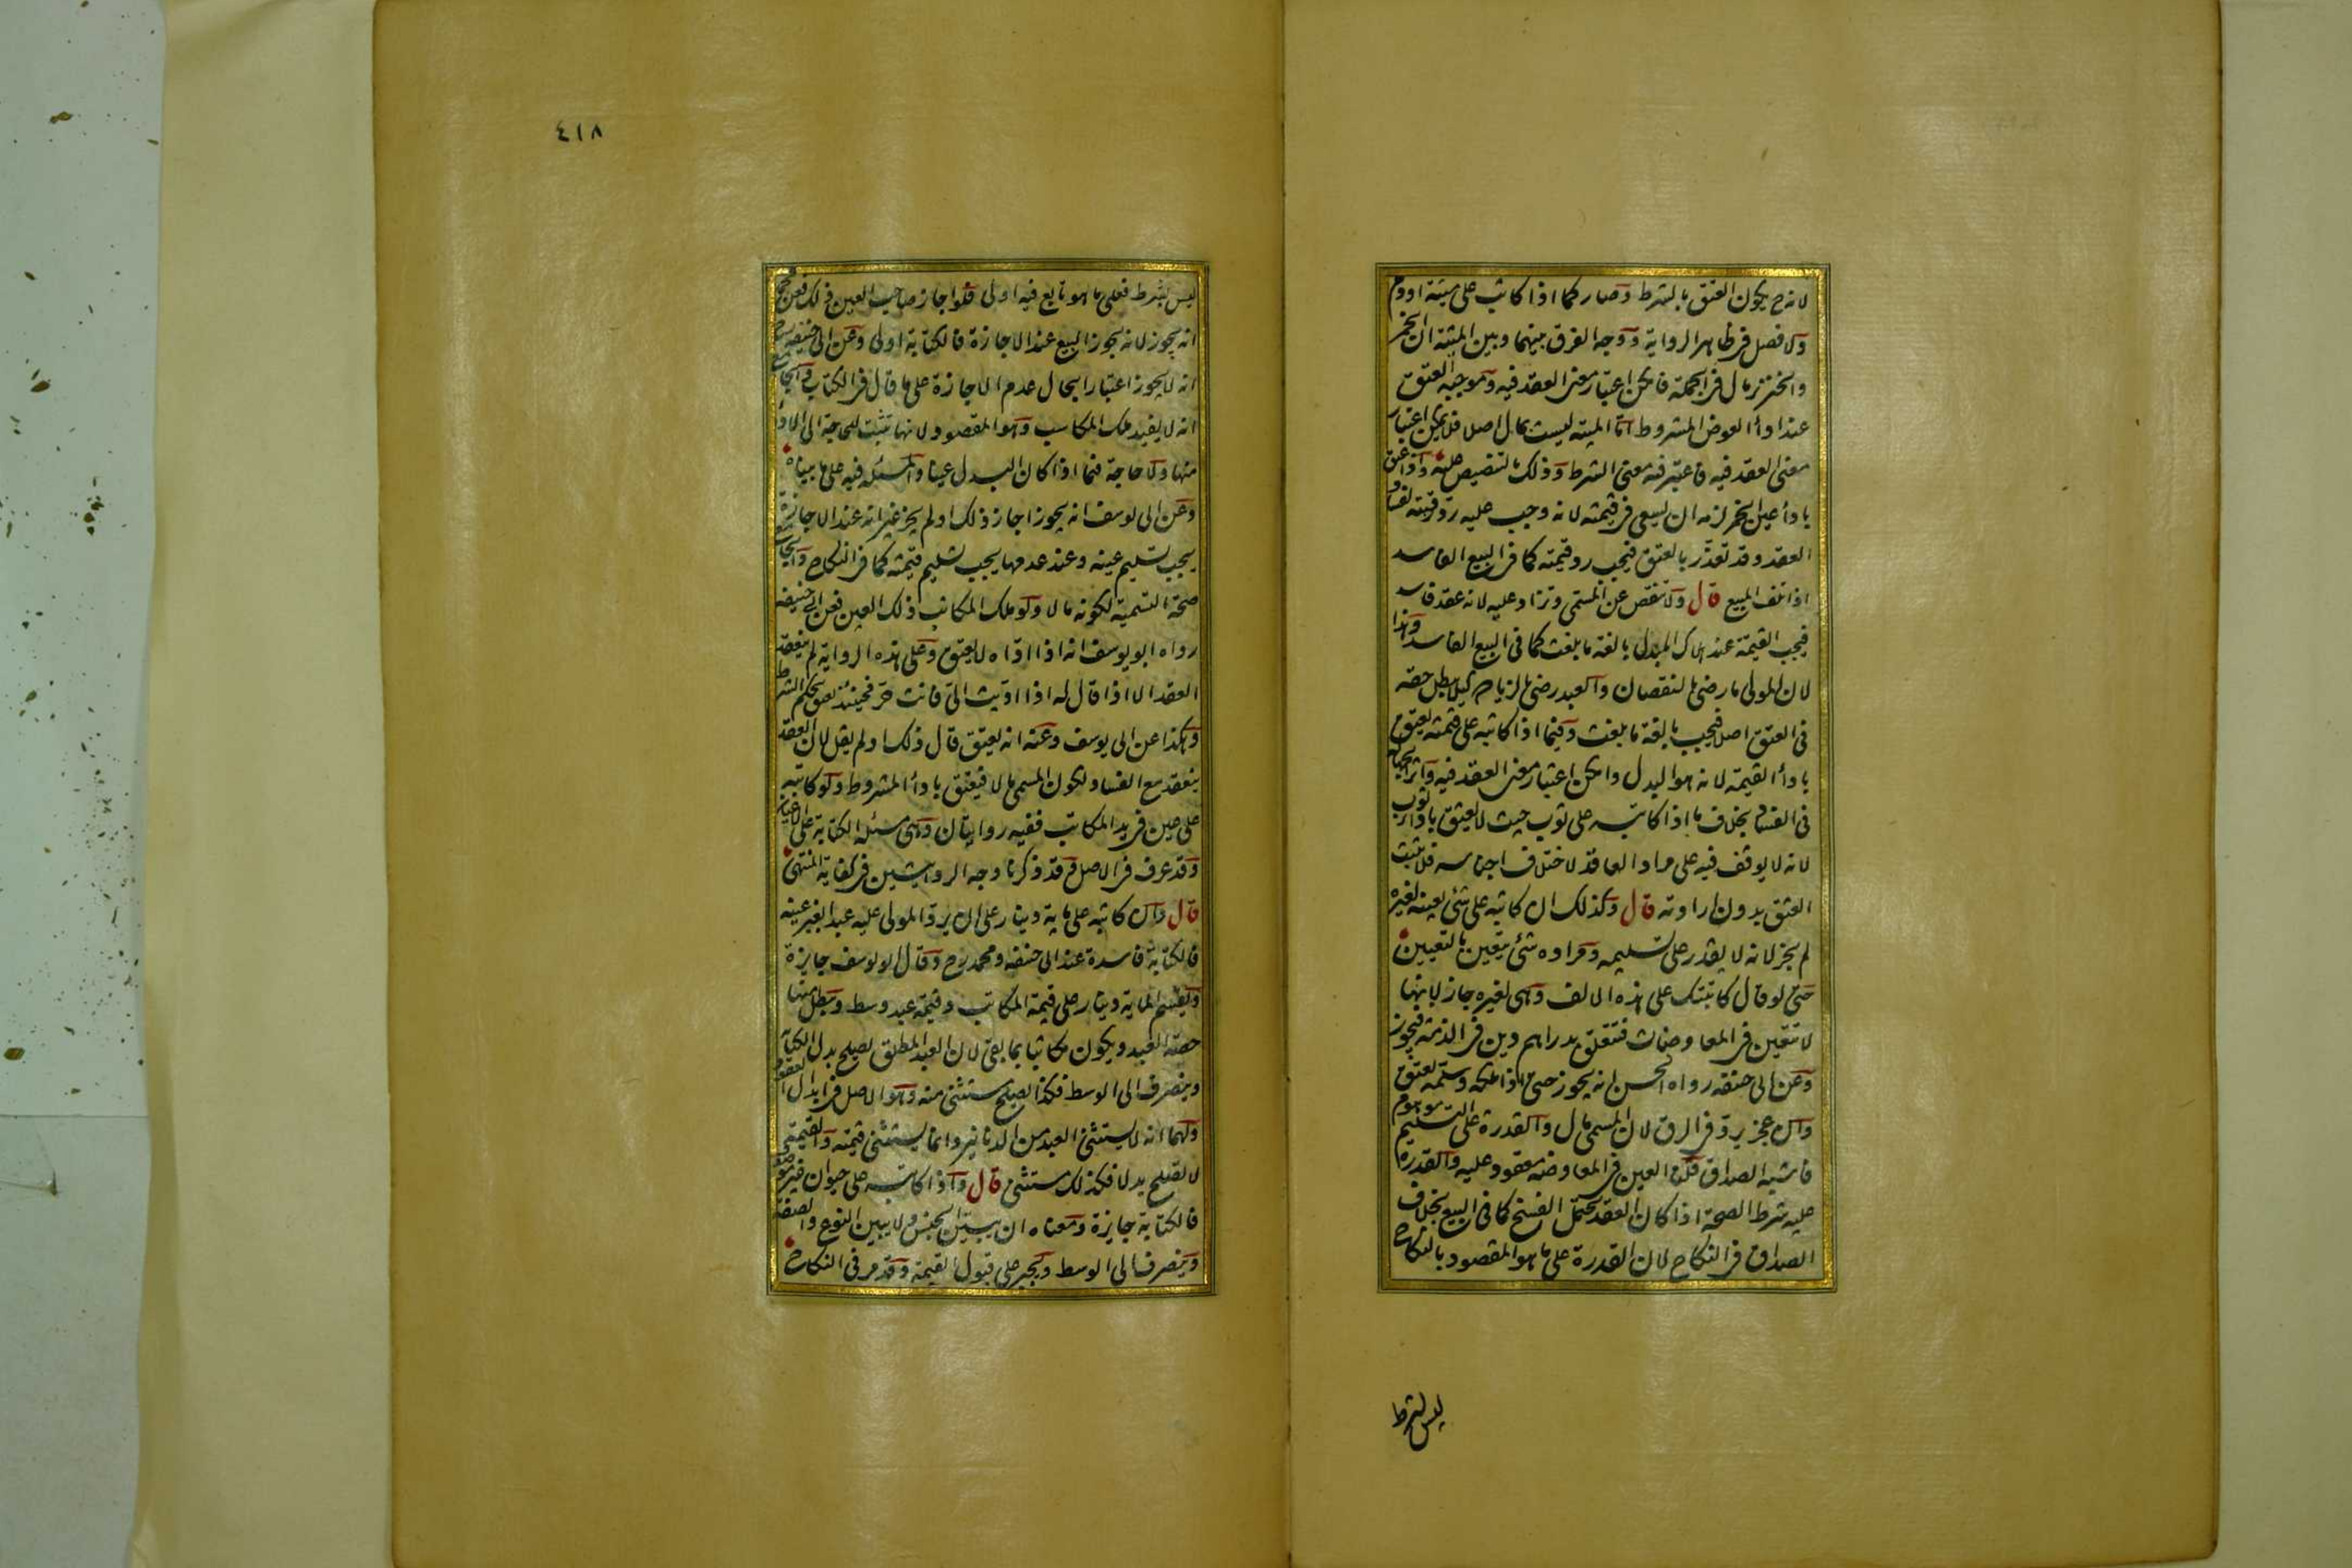 لانه ح يكون العتق بالشرط وصار كما اذا كاتب على ميتة او دم
ولا فصل فى ظاهر الرواية ووجه الفرق بينهما وبين الميتة ان الخمر
والخنزير مال فى الجملة فامكن اعتبار معنى العقد فيه وموجبه العتق
عند اداء العوض المشروط اما الميتة ليست بمال اصلا فلا يمكن اعتبار
معنى العقد فيه فاعتبر فيه معنى الشرط وذلك بالتنصيص عليه واذا عتق
باداء عين الخمر لزمه ان يسعى فى قيمته لانه وجب عليه رد رقبته لفساد
العقد وقد تعذر بالعتق فيجب رد قيمته كما فى البيع الفاسد
اذا تلف المبيع قال ولا ينقص عن المسمى وتزاد عليه لانه عقد فاسد
فيجب القيمة عند هلاك المبدل بالغة ما بلغت كما فى البيع الفاسد وهذا
لان المولى ما رضى بالنقصان والعبد رضى بالزيادة كيلا يبطل حقه
فى العتق اصلا فيجب بالغة ما بلغت وفيما اذا كاتبه على قيمته يعتق
باداء القيمة لانه هو البدل وامكن اعتبار معنى العقد فيه واثر الجهالة
فى الفساد بخلاف ما اذا كاتبه على ثوب حيث لا يعتق باداء ثوب
لانه لا يوقف فيه على مراد العاقد لاختلاف اجناسه فلا يثبت
العتق بدون ارادته قال وكذلك ان كاتبه على شئ بعينه لغيره
لم يجز لانه لا يقدر على تسليمه ومراده شئ يتعين بالتعيين
حتى لو قال كاتبتك على هذه الالف وهى لغيره جاز لانها
لا تتعين فى المعاوضات فتتعلق بدراهم دين فى الذمة فيجوز
وعن ابى حنيفه رواه الحسن انه يجوز حتى اذا ملكه وسلمه يعتق
وان عجز يرد فى الرق لان المسمى مال والقدرة على التسليم موهوم
فاشبه الصداق قلنا العين فى المعاوضة معقود عليه والقدرة
عليه شرط الصحة اذا كان العقد يحتمل الفسخ كما فى البيع بخلاف
الصداق فى النكاح لان القدرة على ما هو المقصود بالنكاح
ليس بشرط
٤١٨
ليس بشرط فعلى ما هو تابع فيه اولى فلو اجاز صاحب العين ذلك فعن محمد
انه يجوز لانه يجوز البيع عند الاجازة فالكتابة اولى وعن ابى حنيفه رح
انه لا يجوز اعتبارا بحال عدم الاجازة على ما قال فى الكتاب والجامع
انه لا يفيد ملك المكاسب وهو المقصود لانها تثبت للحاجة الى الاداء
منها ولا حاجة فيما اذا كان البدل عينا والمسئلة فيه على ما بيناه
وعن ابى يوسف انه يجوز اجاز ذلك او لم يجز غير انه عند الاجازة
يجب تسليم عينه وعند عدمها يجب تسليم قيمته كما فى النكاح والجامع
صحة التسمية لكونه مالا ولو ملك المكاتب ذلك العين فعن ابى حنيفه
رواه ابو يوسف انه اذا اداه لا يعتق وعلى هذه الرواية لم ينعقد
العقد الا اذا قال له اذا اديت الى فانت حر فحينئذ يعتق بحكم الشرط
وهكذا عن ابى يوسف وعنه انه يعتق قال ذلك او لم يقل لان العقد
ينعقد مع الفساد لكون المسمى مالا فيعتق باداء المشروط ولو كاتبه
على عين فى يد المكاتب ففيه روايتان وهى مسئلة الكتابة على الاعيان
وقد عرف فى الاصل وقد ذكرنا وجه الروايتين فى كفاية المنتهى
قال وان كاتبه على ماية دينار على ان يرد المولى عليه عبدا بغير عينه
فالكتابة فاسدة عند ابى حنيفه ومحمد رح وقال ابو يوسف جايزة
ويقسم الماية دينار على قيمة المكاتب وقيمة عبد وسط ويبطل منها
حصة العبد ويكون مكاتبا بما بقى لان العبد المطلق يصلح بدل الكتابة
وينصرف الى الوسط فكذا يصلح مستثنى منه وهو الاصل فى ابدال العقود
ولهما انه لا يستثنى العبد من الدنانير وانما يستثنى قيمته والقيمة
لا تصلح بدلا فكذلك مستثنى قال واذا كاتبه على حيوان غير موصوف
فالكتابة جايزة ومعناه ان يبين الجنس ولا يبين النوع والصفة
وينصرف الى الوسط ويجبر على قبول القيمة وقد مر فى النكاح